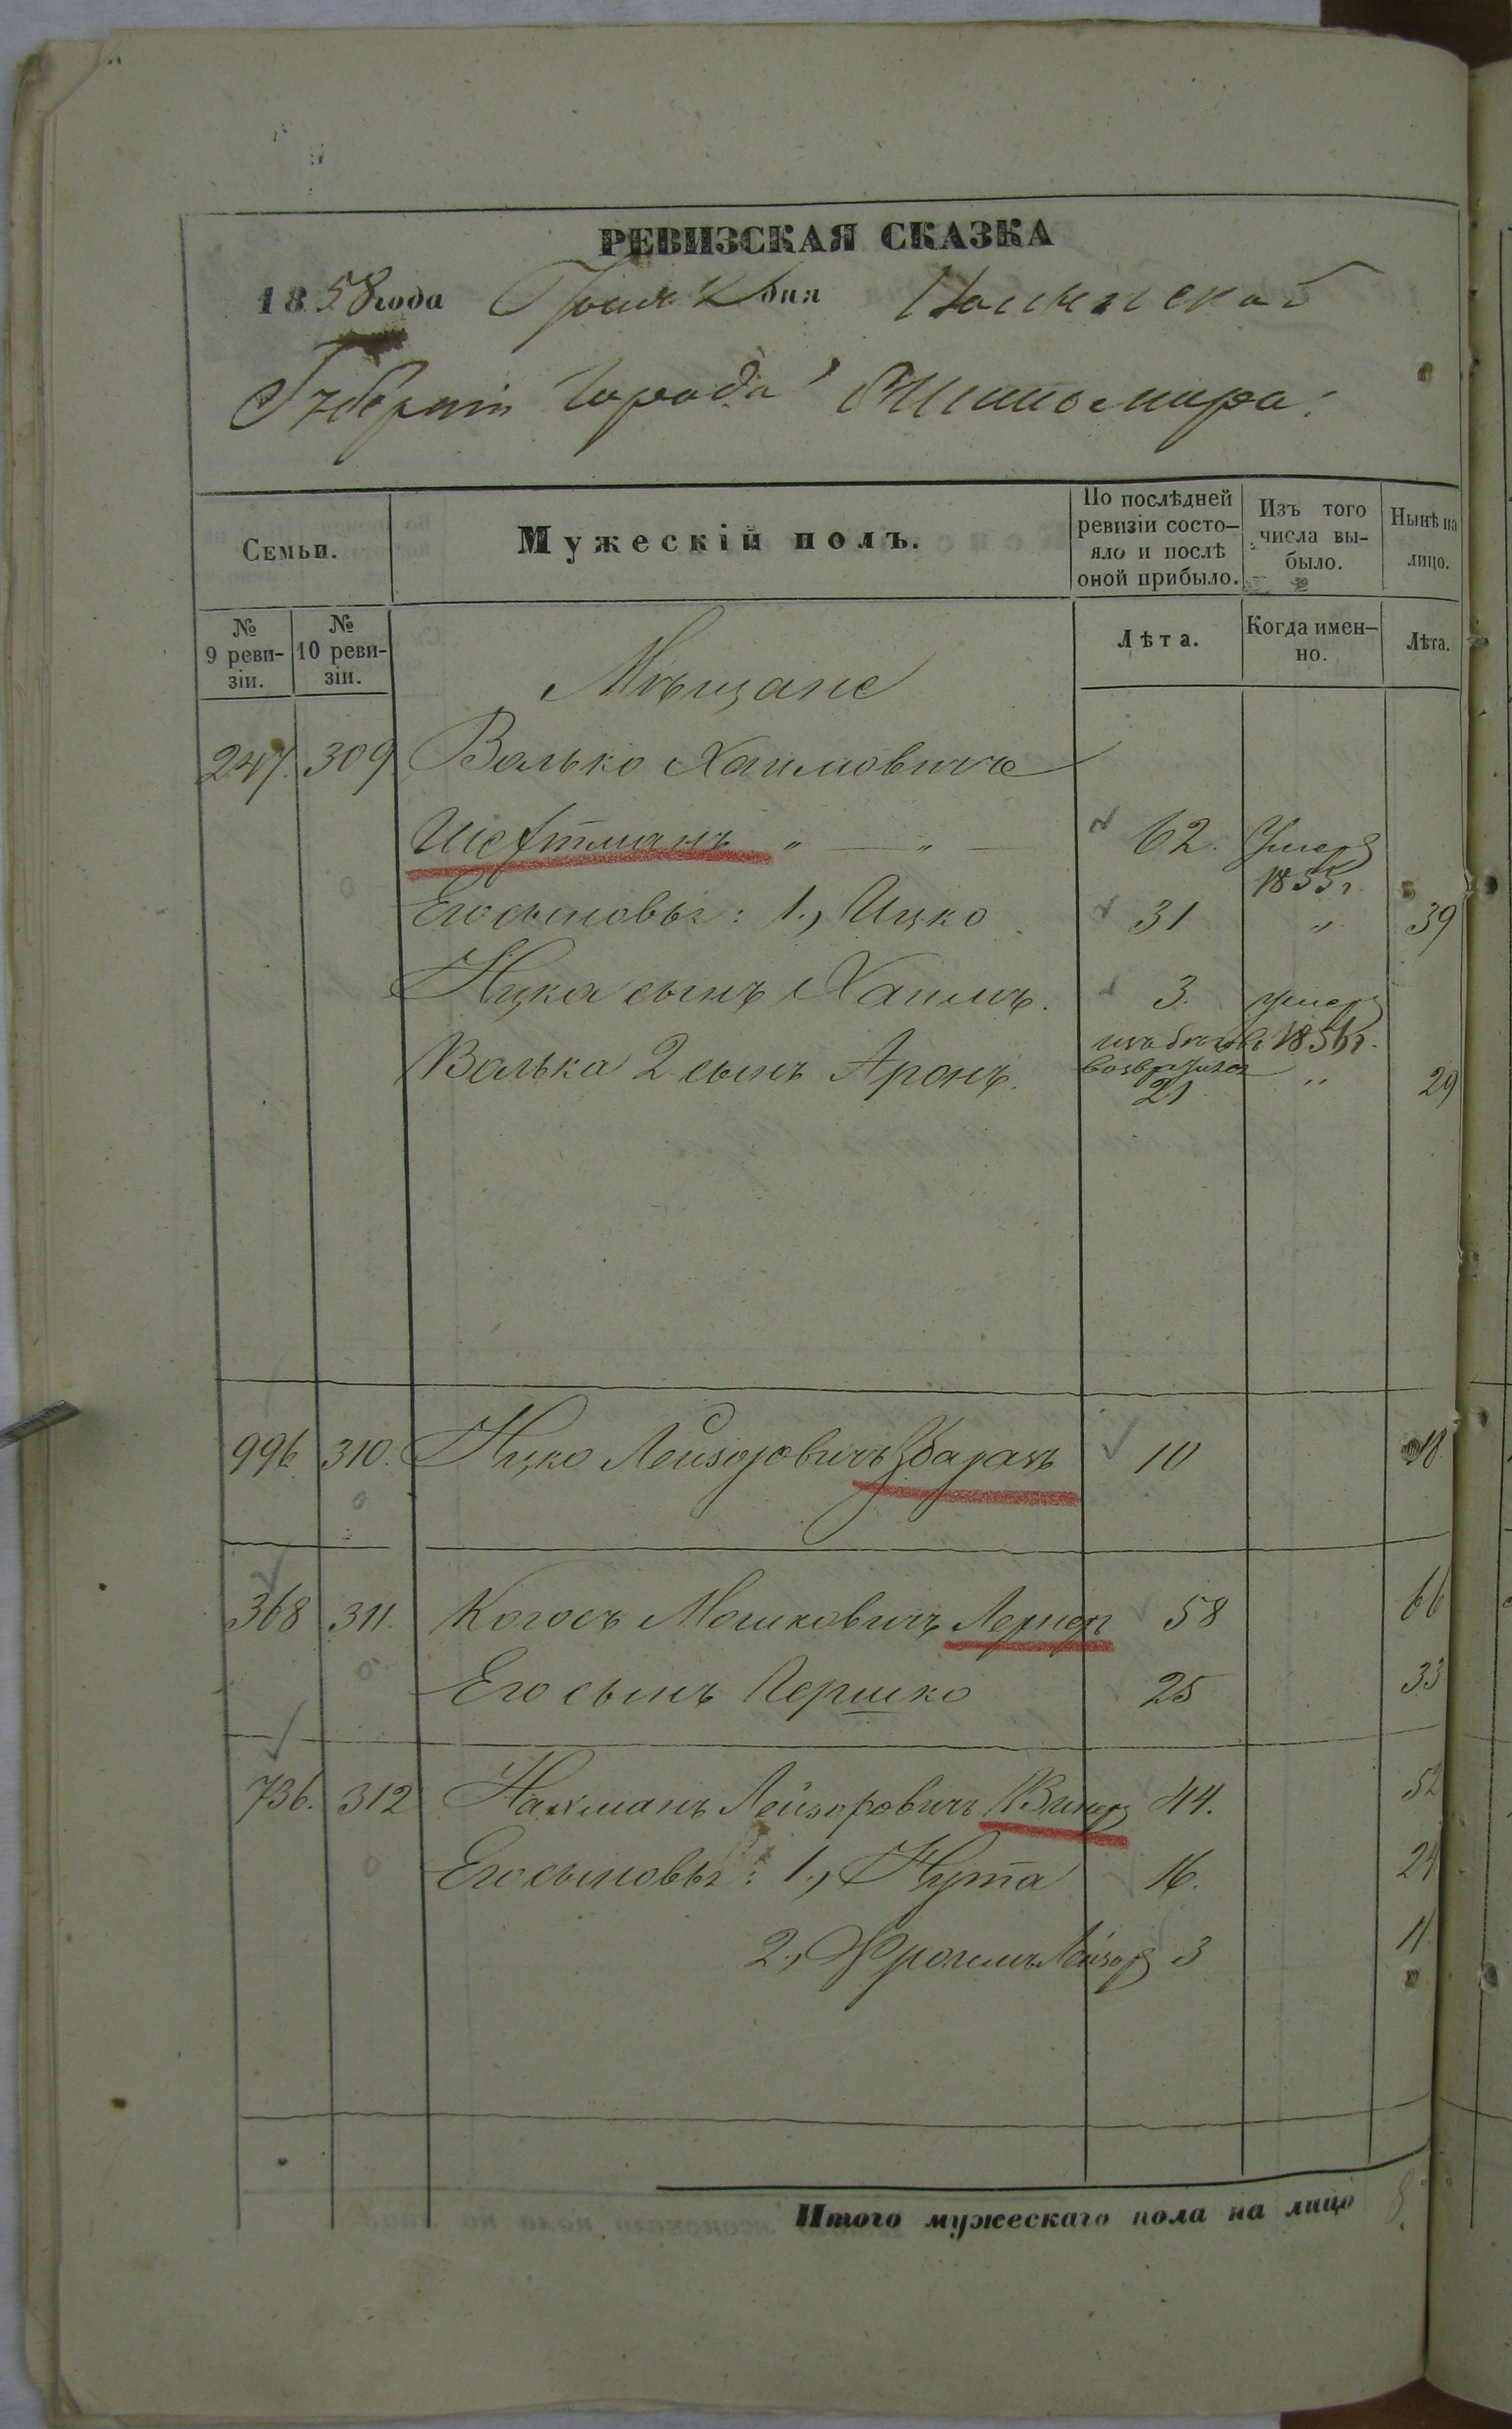 РЕВИЗСКАЯ СКАЗКА
1858 года Іюня дня Волынской
Губерніи Города Житомира.
Семьи.
Мужескій полъ.
По послѣдней ревизіи состо-
яло и послѣ
оной прибыло.
Изъ того
числа вы-
было.
Нынѣ на
лицо.
№
9 реви-
зіи.
№
10 реви-
зіи.
Лѣта.
Когда имен-
но.
Лѣта.
Мѣщане
247. 309 Волько Хаимовичъ
Шехтманъ " — " — 62. Умеръ
1855 г.
Его сыновья: 1., Ицко 31 " 39
Ицка сынъ Хаимъ. 3. умеръ
1856 г.
Волька 2 сынъ Аронъ. изъ бѣговъ
возвратился
21 " 29
996 310. Ицко Лейзоровичъ Збаражъ 10 18
368 311. Когосъ Мошковичъ Лернеръ 58 66
Его сынъ Гершко 25 33
736. 312 Нахманъ Лейзоровичъ Винеръ 44. 52
Его сыновья: 1., Нута 16. 24
2., Фроимъ Лейзоръ 3 11
Итого мужескаго пола на лицо 8.